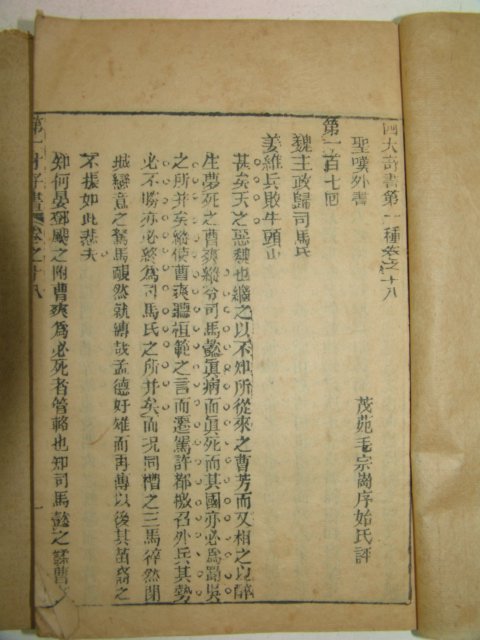 四大奇書第一種卷之十八
聖嘆外書
茂苑毛宗崗序始氏評
第一百七回
魏主政歸司馬氏
姜維兵敗牛頭山
甚矣天之惡魏也繼之以不知所從來之曹芳而又相之以醉
生夢死之曹爽縱令司馬懿眞病而眞死而其國亦必爲蜀吳
之所并矣縱使曹爽聽桓範之言而遷駕許都檄召外兵其勢
必不勝亦必終爲司馬氏之所并矣而况同槽之三馬猝然閉
城戀豆之駑馬靦然就縛哉孟德奸雄而再傳以後其苗裔之
不振如此悲夫
知何晏鄧颺之附曹爽爲必死者管輅也知司馬懿之謀曹
第一才子書
卷之十八